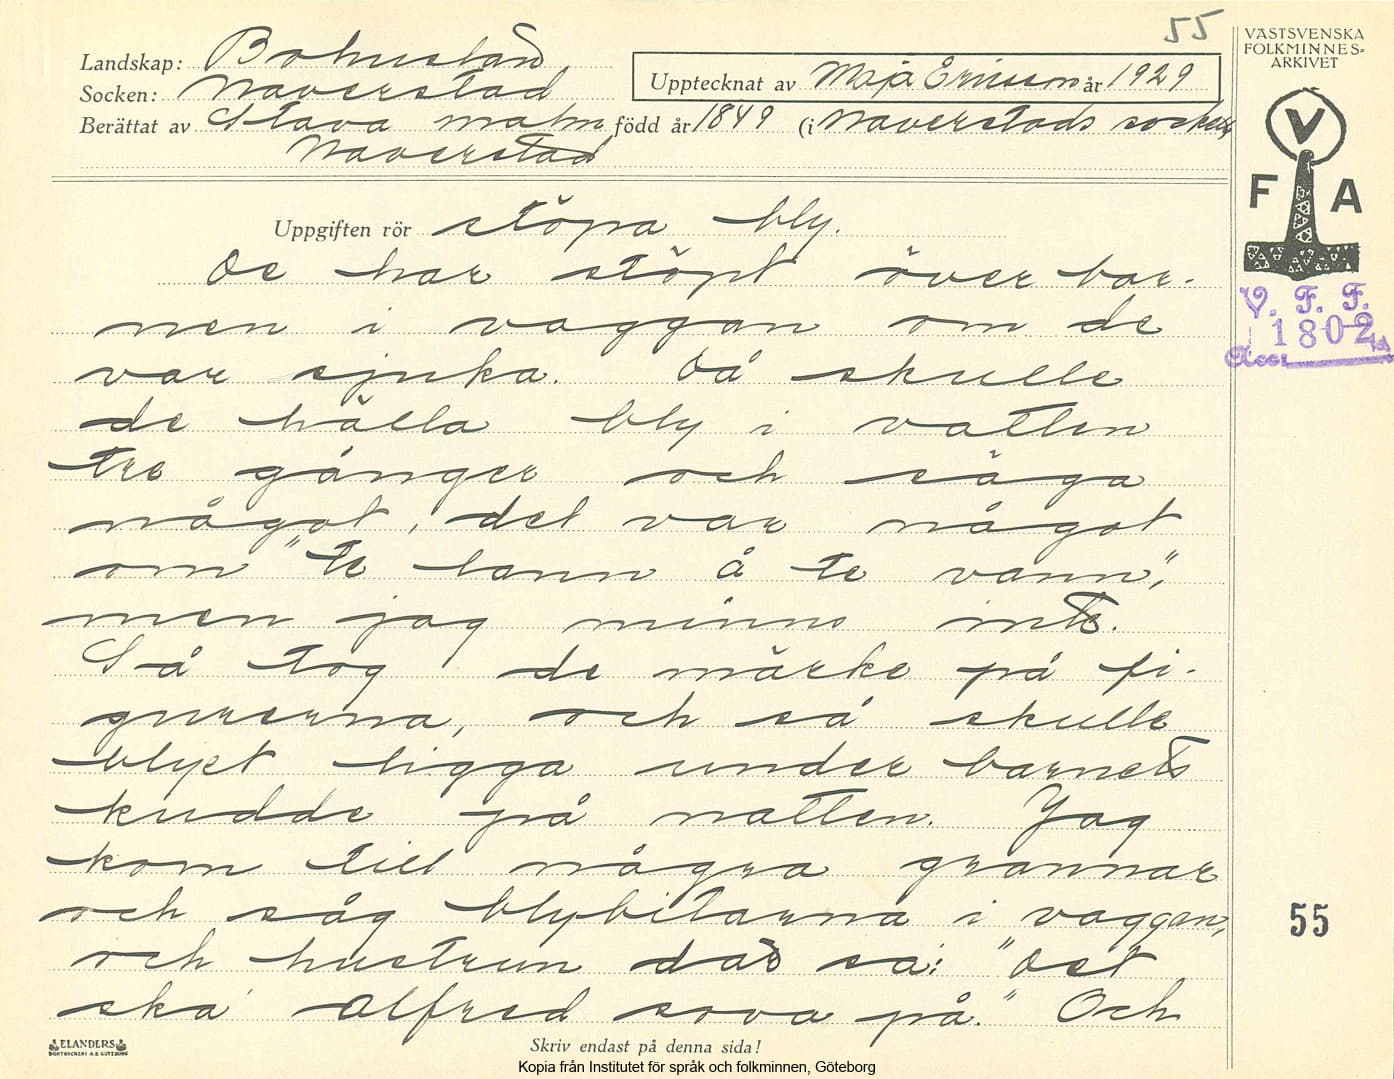 55
Landskap: Bohuslän
Socken: Naverstad
Upptecknat av Maja Ericsson år 1929
Berättat av Stava Malm född år 1849 (i Naverstads socken
Naverstad
Uppgiften rör stöpa bly.
De har stöpt över bar-
nen i vaggan om de
var sjuka. Då skulle
de hälla bly i vatten
tre gånger och säga
något, det var något
om "te lann å te vann",
men jag minns inte.
Så tog de märke på fi-
gurerna, och så skulle
blyet ligga under barnets
kudde på natten. Jag
kom till några grannar
och såg blybitarna i vaggan,
och hustrun där sa: "Det
ska Alfred sova på." Och
Skriv endast på denna sida!
ELANDERS
BOKTRYCKERI A.B. GÖTEBORG
VÄSTSVENSKA
FOLKMINNES-
ARKIVET
V
F A
V. F. F.
1802
Acc.
55
Kopia från Institutet för språk och folkminnen, Göteborg